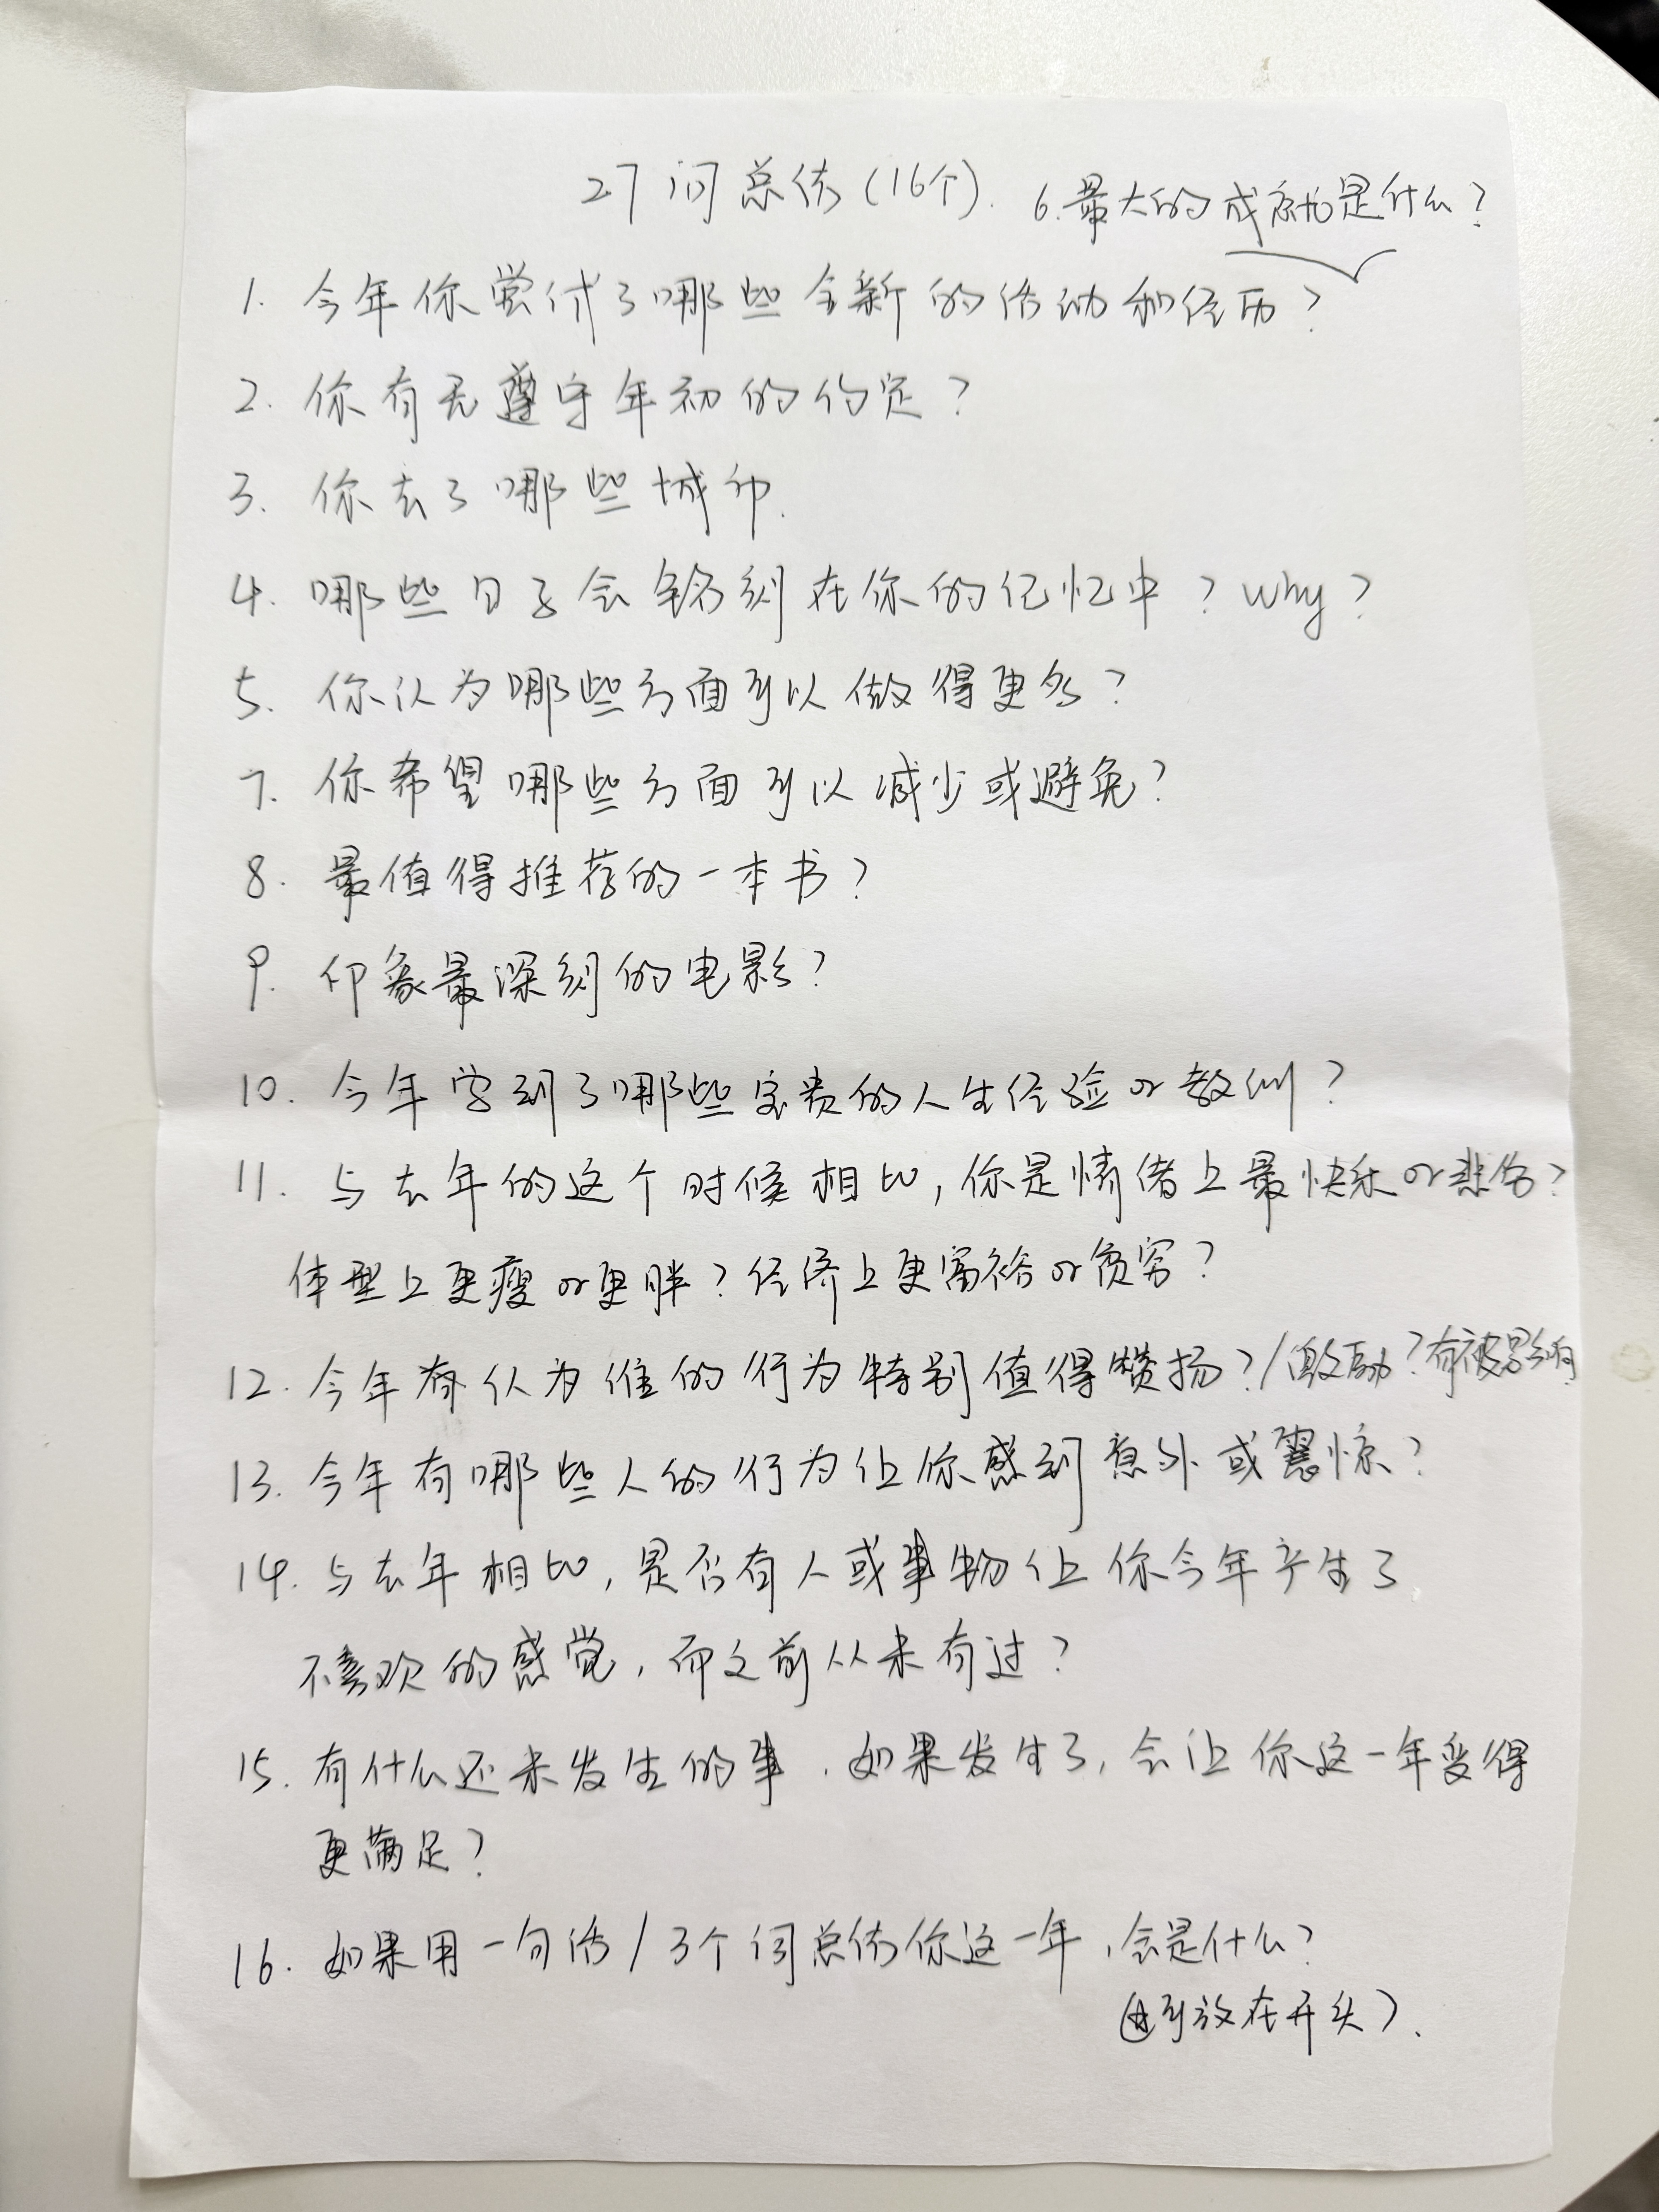 27问总结(16个).
6.最大的成就是什么?
1. 今年你尝试了哪些全新的活动和经历?
2. 你有无遵守年初的约定?
3. 你去了哪些城市.
4. 哪些日子会铭刻在你的记忆中?why?
5. 你认为哪些方面可以做得更多?
7. 你希望哪些方面可以减少或避免?
8. 最值得推荐的一本书?
9. 印象最深刻的电影?
10. 今年学到了哪些宝贵的人生经验or教训?
11. 与去年的这个时候相比,你是情绪上最快乐or悲伤?
体型上更瘦or更胖?经济上更富裕or贫穷?
12. 今年有认为谁的行为特别值得赞扬?/激励?有被影响
13. 今年有哪些人的行为让你感到意外或震惊?
14. 与去年相比,是否有人或事物让你今年产生了
不喜欢的感觉,而之前从未有过?
15. 有什么还未发生的事,如果发生了,会让你这一年变得
更满足?
16. 如果用一句话/3个词总结你这一年,会是什么?
(可放在开头).